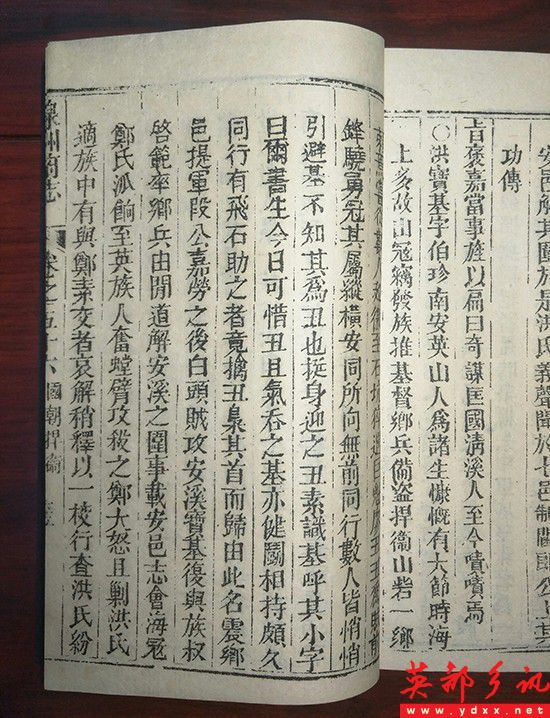 安邑解其圍於是洪氏義聲聞於七邑制閫國公上其
功傳
旨褒嘉當事旌以扁曰奇謀匡國淸溪人至今嘖嘖焉
○洪寶基字伯珍南安英山人爲諸生慷慨有大節時海
上多故山冠竊發族推基督鄉兵備盜捍衞山砦一鄉
鋒驍勇冠其屬縱橫安同所向無前同行數人皆悄悄
引避基不知其爲丑也挺身迎之丑素識基呼其小字
曰爾書生今日可惜丑且氣吞之基亦健鬭相持頗久
同行有飛石助之者竟擒丑梟其首而歸由此名震鄉
邑提軍段公嘉勞之後白頭賊攻安溪寶基復與族叔
啓範率鄉兵由間道解安溪之圍事載安邑志會海冦
鄭氏派餉至英族人奮螳臂攻殺之鄭大怒且剿洪氏
適族中有與鄭素交者哀解稍釋以一棱行查洪氏紛
泉州府志
卷之五十六
國朝捍衞
英都乡讯
www.ydxx.net